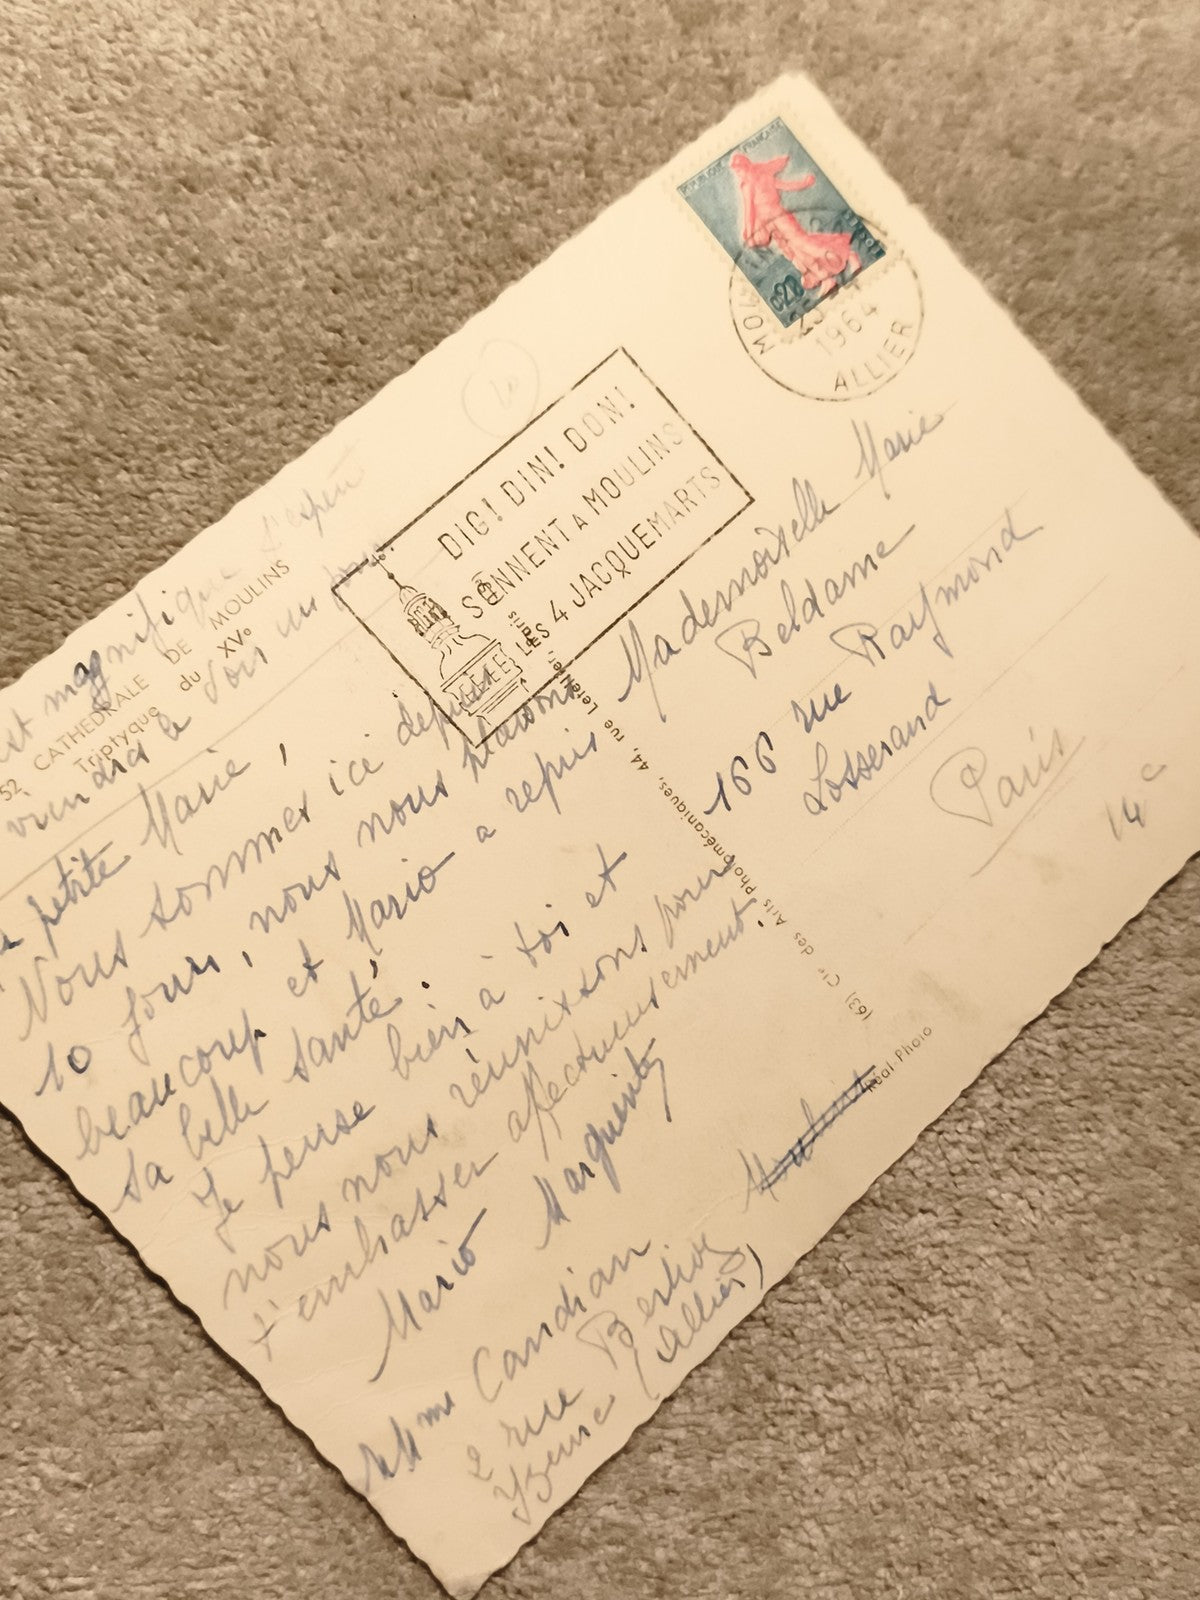 est magnifique
52 CATHÉDRALE DE MOULINS
Triptyque du XVe
petite Marie,
Nous sommes ici depuis
10 jours, nous nous plaisons
beaucoup et Mario a repris
sa belle santé.
Je pense bien à toi et
nous nous réunissons pour
t'embrasser affectueusement.
Mario Marguerite
Mme Candian
2 rue Berlioz
Yzeure (Allier)
DIG! DIN! DON!
SONNENT A MOULINS
LES 4 JACQUEMARTS
RÉPUBLIQUE FRANÇAISE
POSTES
0,20
MOULINS
1964
ALLIER
Mademoiselle Marie
Beldame
166 rue Raymond
Losserand
Paris
14e
(63) Cie des Arts Photomécaniques, 44, rue Letellier, Paris
Réal-Photo